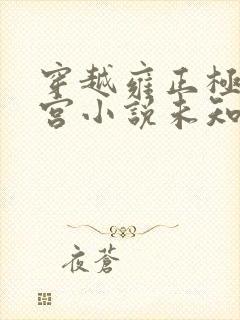 穿越雍正極
宮小說未知
夜蒼